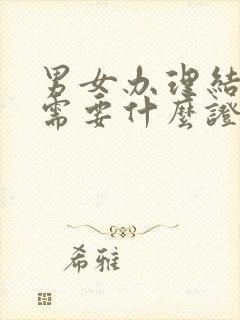 男女办理结
需要什麼證
希雅